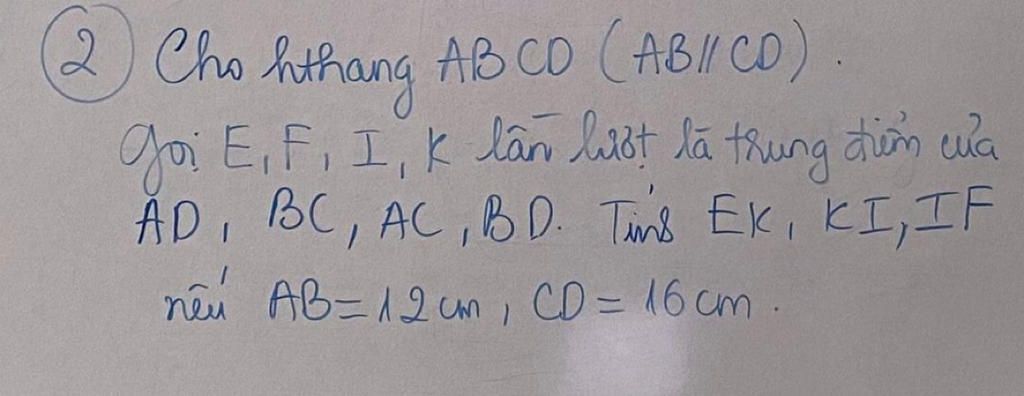 ② Cho hthang ABCD (AB//CD).
Gọi E, F, I, K lần lượt là trung điểm của
AD, BC, AC, BD. Tính EK, KI, IF
nếu AB=12cm, CD=16cm.